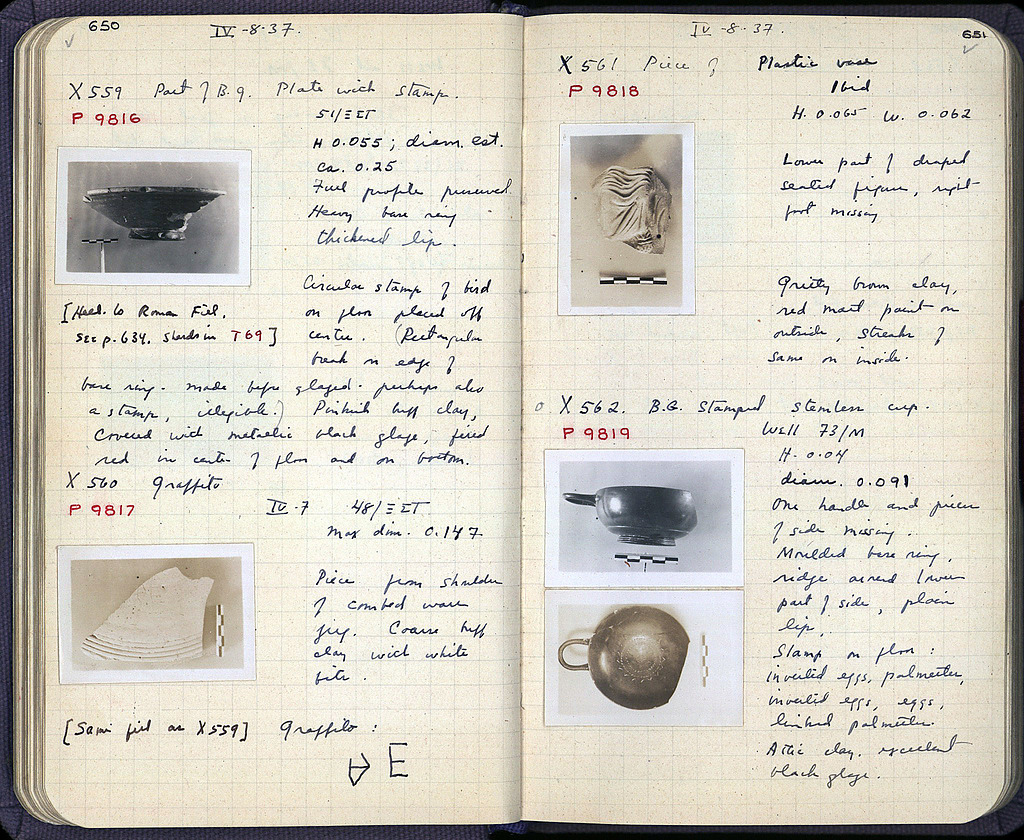 650
IV -8-37.
X 559 Part of B.g. Plate with stamp.
P 9816
51/ΞΣΤ
H 0.055 ; diam. est.
ca. 0.25
Full profile preserved
Heavy base ring
thickened lip.
Circular stamp of bird
on floor placed off
[Hell. to Roman Fill,
see p. 634. sherds in T 69]
centre. (Rectangular
break on edge of
base ring. made before glazed. perhaps also
a stamp, illegible.) Pinkish buff clay,
Covered with metallic black glaze, fired
red in center of floor and on bottom.
X 560 graffito
P 9817
IV -7 48/ΞΣΤ
Max dim. 0.147
Piece from shoulder
of combed ware
jug. Coarse buff
clay with white
bits.
[Same fill as X 559] graffito :
E
651
IV -8-37.
X 561 Piece of Plastic vase
P 9818
Ibid
H. 0.065 W. 0.062
Lower part of draped
seated figure, right
foot missing
Gritty brown clay,
red matt paint on
outside, streaks of
same on inside.
X 562. B.G. Stamped stemless cup.
P 9819
Well 73/M
H. 0.04
diam. 0.091
One handle and pieces
of side missing.
Moulded base ring,
ridge around lower
part of side, plain
lip.
Stamp on floor :
inverted eggs, palmettes,
inverted eggs, eggs,
linked palmettes.
Attic clay. excellent
black glaze.